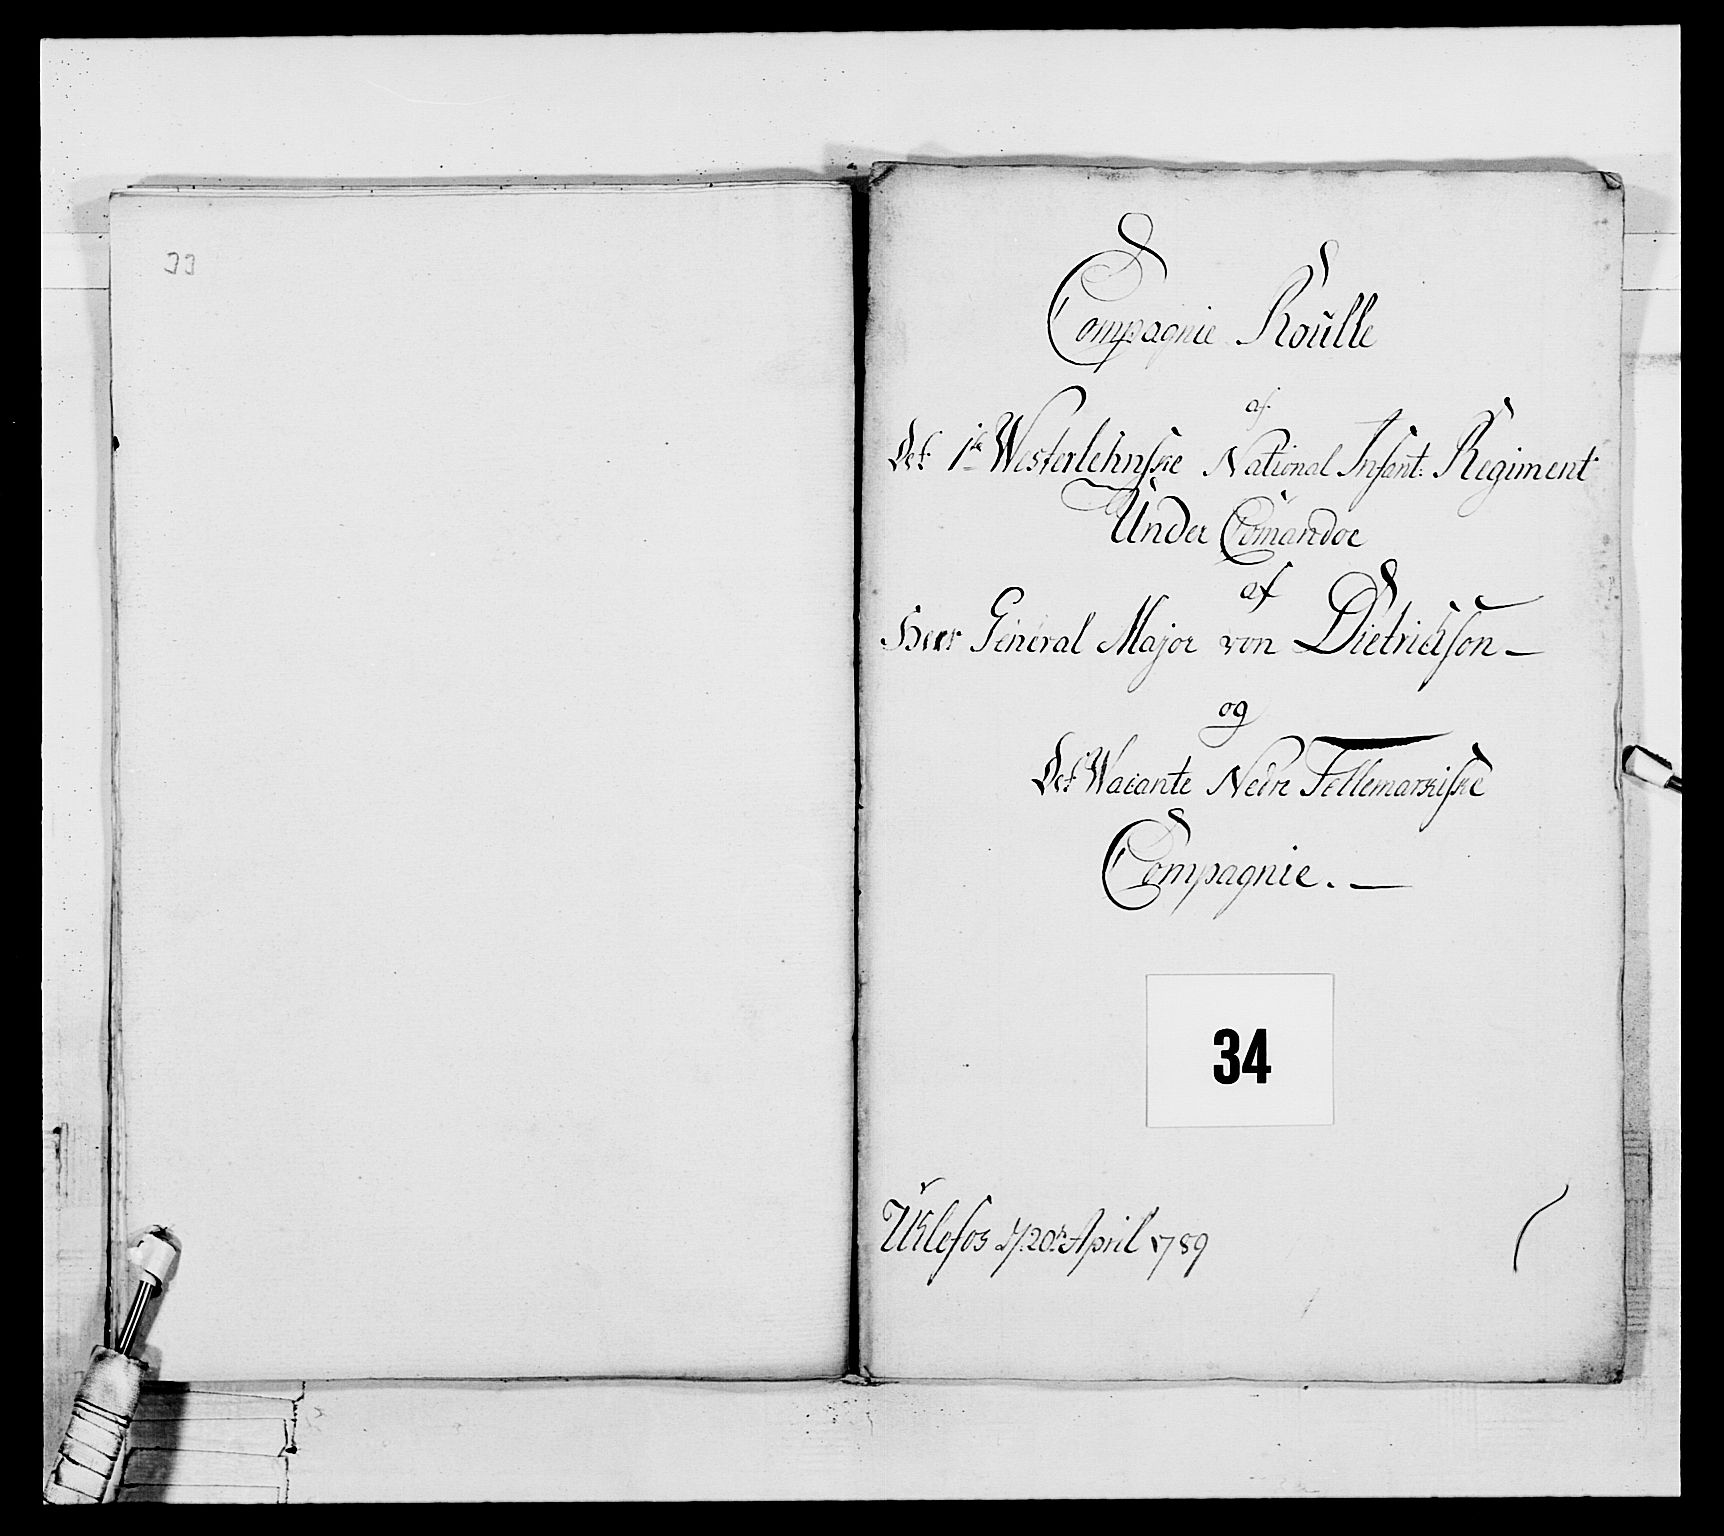 33
Compagnie Roülle
af
Det 1te Westerlehnske National Infant: Regiment
Under Comandoe
af
Herr General Major von Dietrichson —
og
Det Wacante Nedre Tellemarkiske
Compagnie. —
34
Ulefos d: 20de April 1789